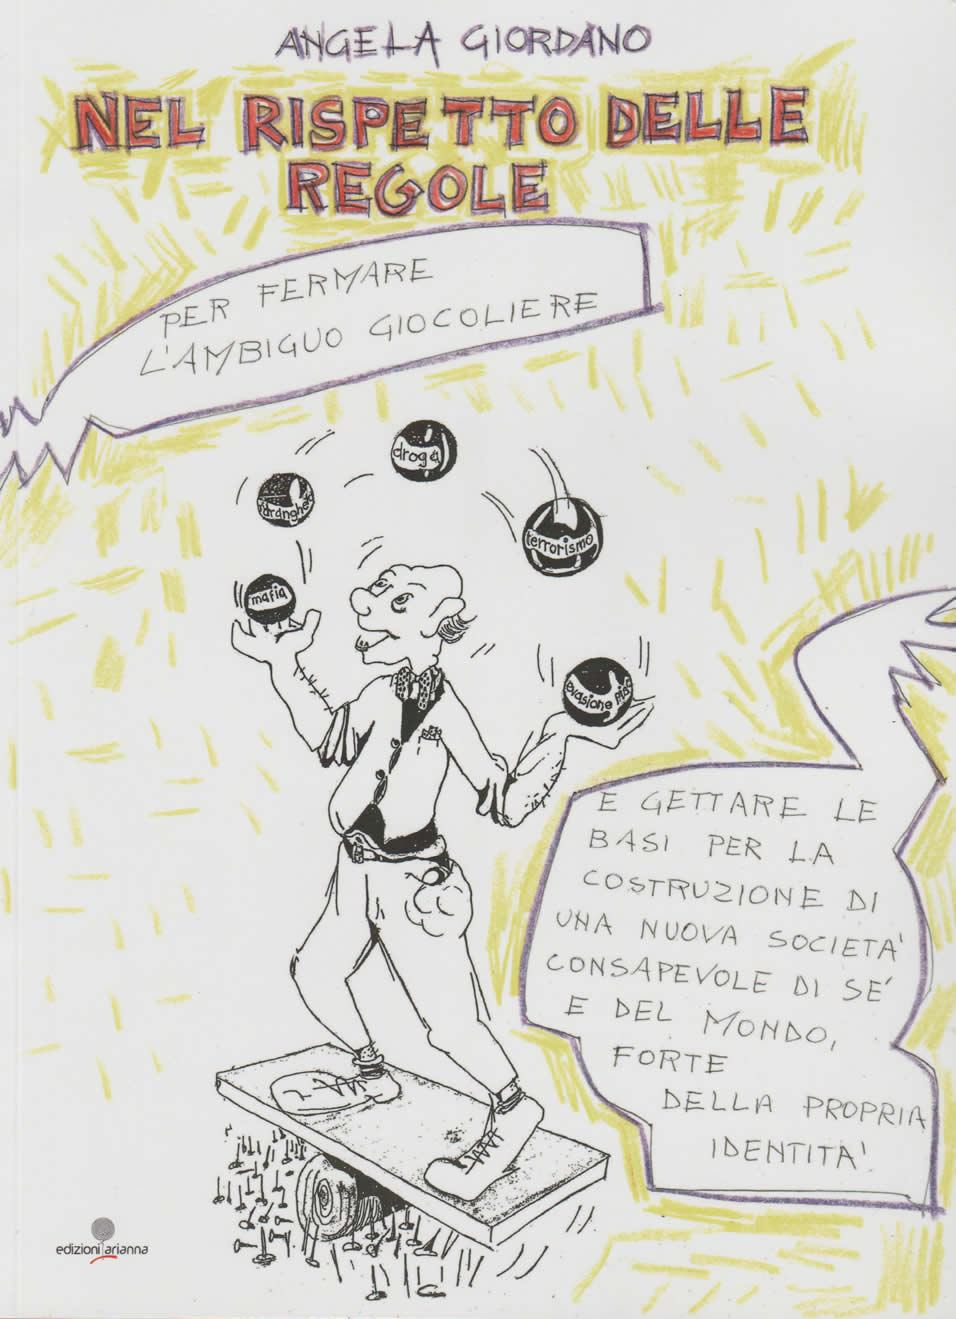 ANGELA GIORDANO
NEL RISPETTO DELLE
REGOLE
PER FERMARE
L'AMBIGUO GIOCOLIERE
droga
terrorismo
mafia
evasione
E GETTARE LE
BASI PER LA
COSTRUZIONE DI
UNA NUOVA SOCIETA'
CONSAPEVOLE DI SE'
E DEL MONDO,
FORTE
DELLA PROPRIA
IDENTITA'
edizioni arianna